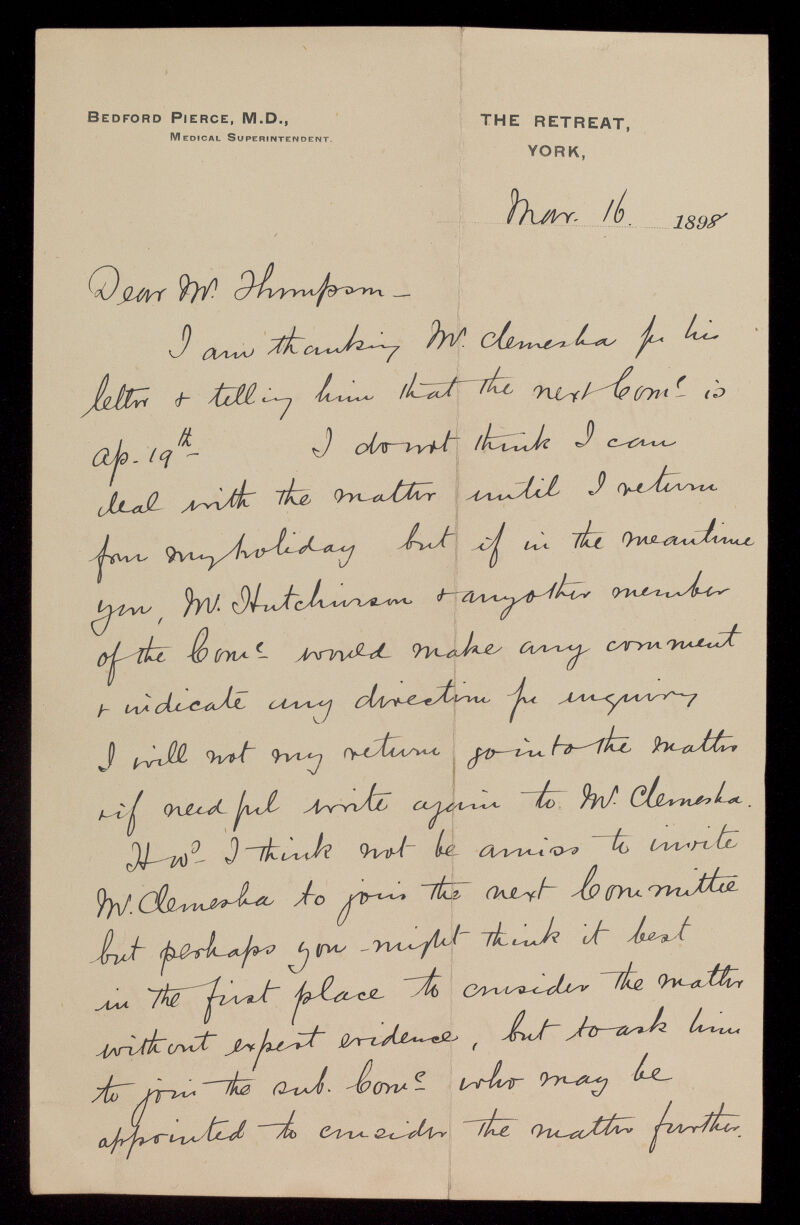 BEDFORD PIERCE, M.D.,
MEDICAL SUPERINTENDENT.
THE RETREAT,
YORK,
Mar. 16. 1898
Dear Mr. Thompson –
I am thanking Mr. Clemesha for his
letter & telling him that the next Come. is
Ap. 19th – I do not think I can
deal with the matter until I return
from my holiday but if in the meantime
you, Mr. Hutchinson & any other member
of the Come. would make any comment
& indicate any direction for inquiry
I will not my return go into the matter
& if needful write again to Mr. Clemesha.
It wd. I think not be amiss to invite
Mr. Clemesha to join the next Committee
but perhaps you might think it best
in the first place to consider the matter
without expert evidence, but to ask him
to join the sub. Come. who may be
appointed to consider the matter further.